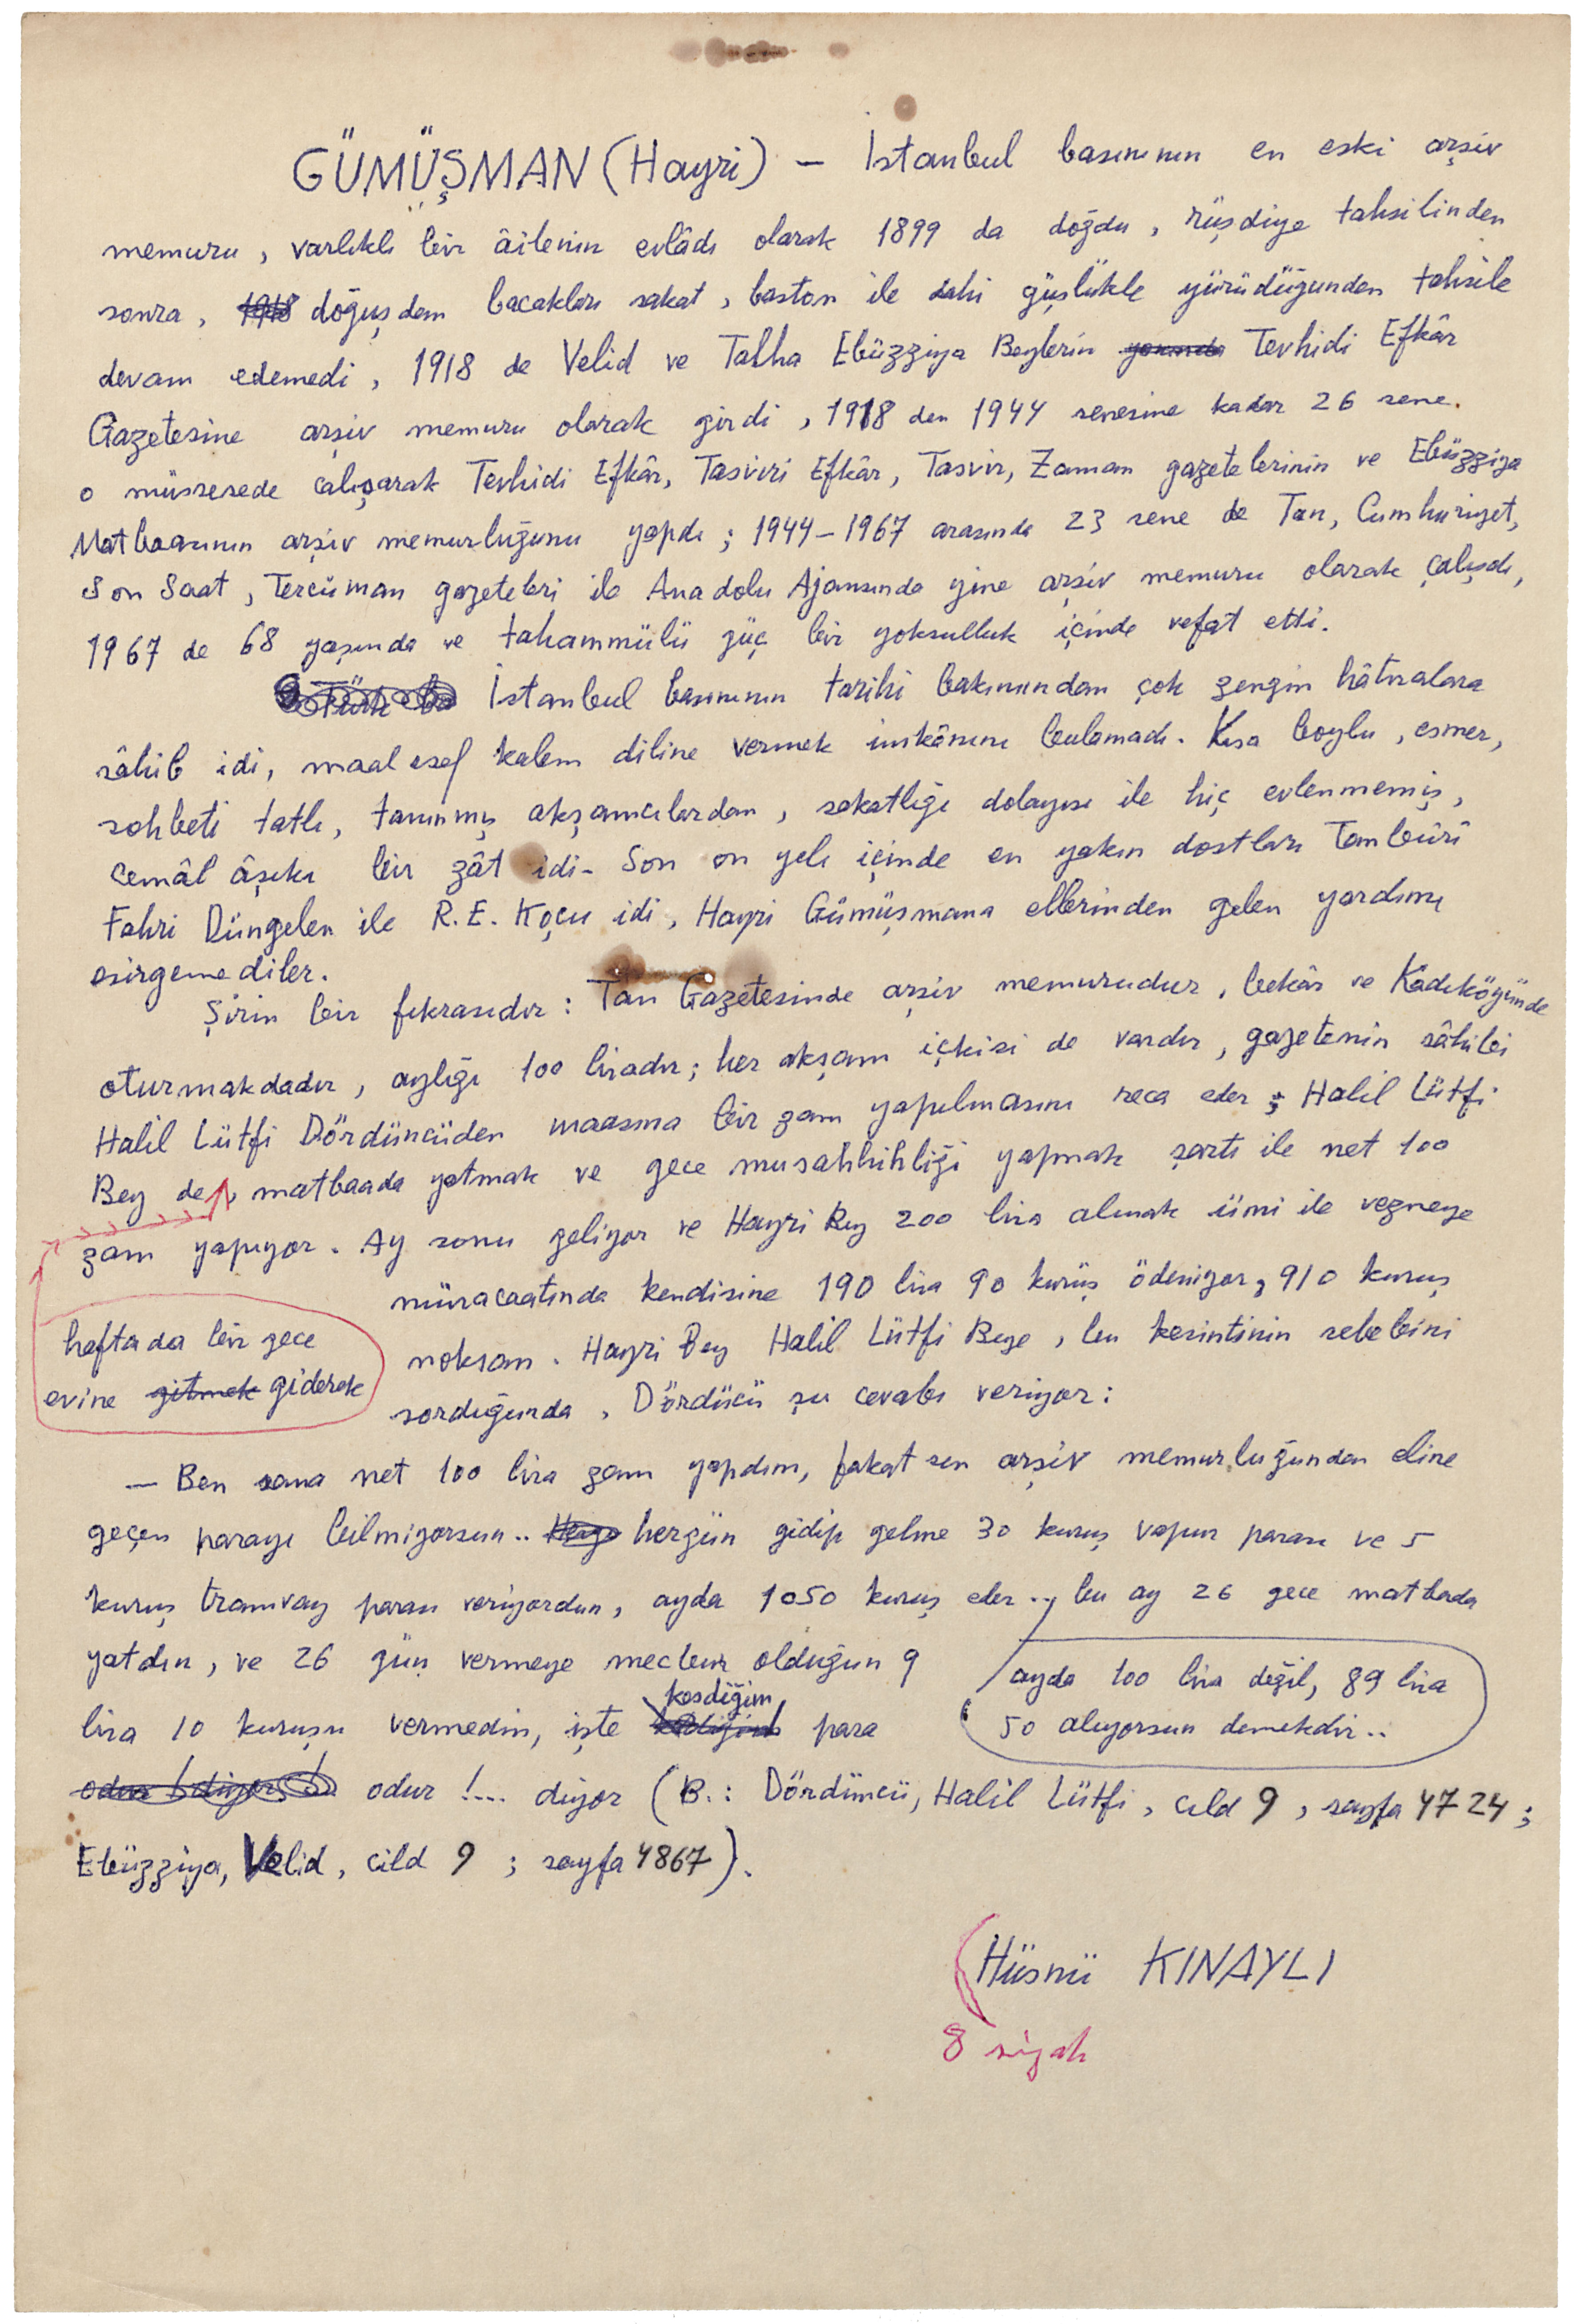 GÜMÜŞMAN (Hayri) — İstanbul basınının en eski arşiv
memuru, varlıklı bir âilenin evlâdı olarak 1899 da doğdu, rüşdiye tahsilinden
sonra, 1918 doğuşdan bacakları sakat, baston ile dahi güşlükle yürüdüğünden tahsile
devam edemedi, 1918 de Velid ve Talha Ebüzziya Beylerin Tevhidi Efkâr
Gazetesine arşiv memuru olarak girdi, 1918 den 1944 senesine kadar 26 sene.
o müessesede çalışarak Tevhidi Efkâr, Tasviri Efkâr, Tasvir, Zaman gazetelerinin ve Ebüzziya
Matbaasının arşiv memurluğunu yapdı; 1944–1967 arasında 23 sene de Tan, Cumhuriyet,
Son Saat, Tercüman gazeteleri ile Anadolu Ajansında yine arşiv memuru olarak çalışdı,
1967 de 68 yaşında ve tahammülü güç bir yoksulluk içinde vefat etti.
İstanbul basınının tarihi bakımından çok zengin hâtıralara
sâhib idi, maalesef kalem diline vermek imkânını bulamadı. Kısa boylu, esmer,
sohbeti tatlı, tanınmış akşamcılardan, sakatlığı dolayısı ile hiç evlenmemiş,
cemâl âşıkı bir zât idi. Son on yılı içinde en yakın dostları Tambûrî
Fahri Düngelen ile R. E. Koçu idi, Hayri Gümüşmana ellerinden gelen yardımı
esirgemediler.
Şirin bir fıkrasıdır: Tan Gazetesinde arşiv memurudur, bekâr ve Kadıköyünde
oturmakdadır, aylığı 100 liradır; her akşam içkisi de vardır, gazetenin sâhibi
Halil Lütfi Dördüncüden maaşına bir zam yapılmasını reca eder; Halil Lütfi
Bey de, matbaada yatmak ve gece musahhihliği yapmak şartı ile net 100
zam yapıyor. Ay sonu geliyor ve Hayri Bey 200 lira almak ümi ile vezneye
müracaatında kendisine 190 lira 90 kurüş ödeniyor, 910 kuruş
haftada bir gece
evine gitmek giderek
noksan. Hayri Bey Halil Lütfi Beye, bu kesintinin sebebini
sordığunda, Dördücü şu cevabı veriyor:
— Ben sana net 100 lira zam yapdım, fakat sen arşiv memurluğundan eline
geçen parayı bilmiyorsun.. hergün gidip gelme 30 kuruş vapur parası ve 5
kuruş tramvay parası veriyordun, ayda 1050 kuruş eder.., bu ay 26 gece matbada
yatdın, ve 26 gün vermeye mecbur olduğun 9
ayda 100 lira değil, 89 lira
50 alıyorsun demekdir..
kesdiğim
lira 10 kuruşu vermedin, işte para
odur !... diyor (B.: Dördüncü, Halil Lütfi, cild 9, sayfa 4724;
Ebüzziya, Velid, cild 9; sayfa 4867).
(Hüsnü KINAYLI
8 siyah